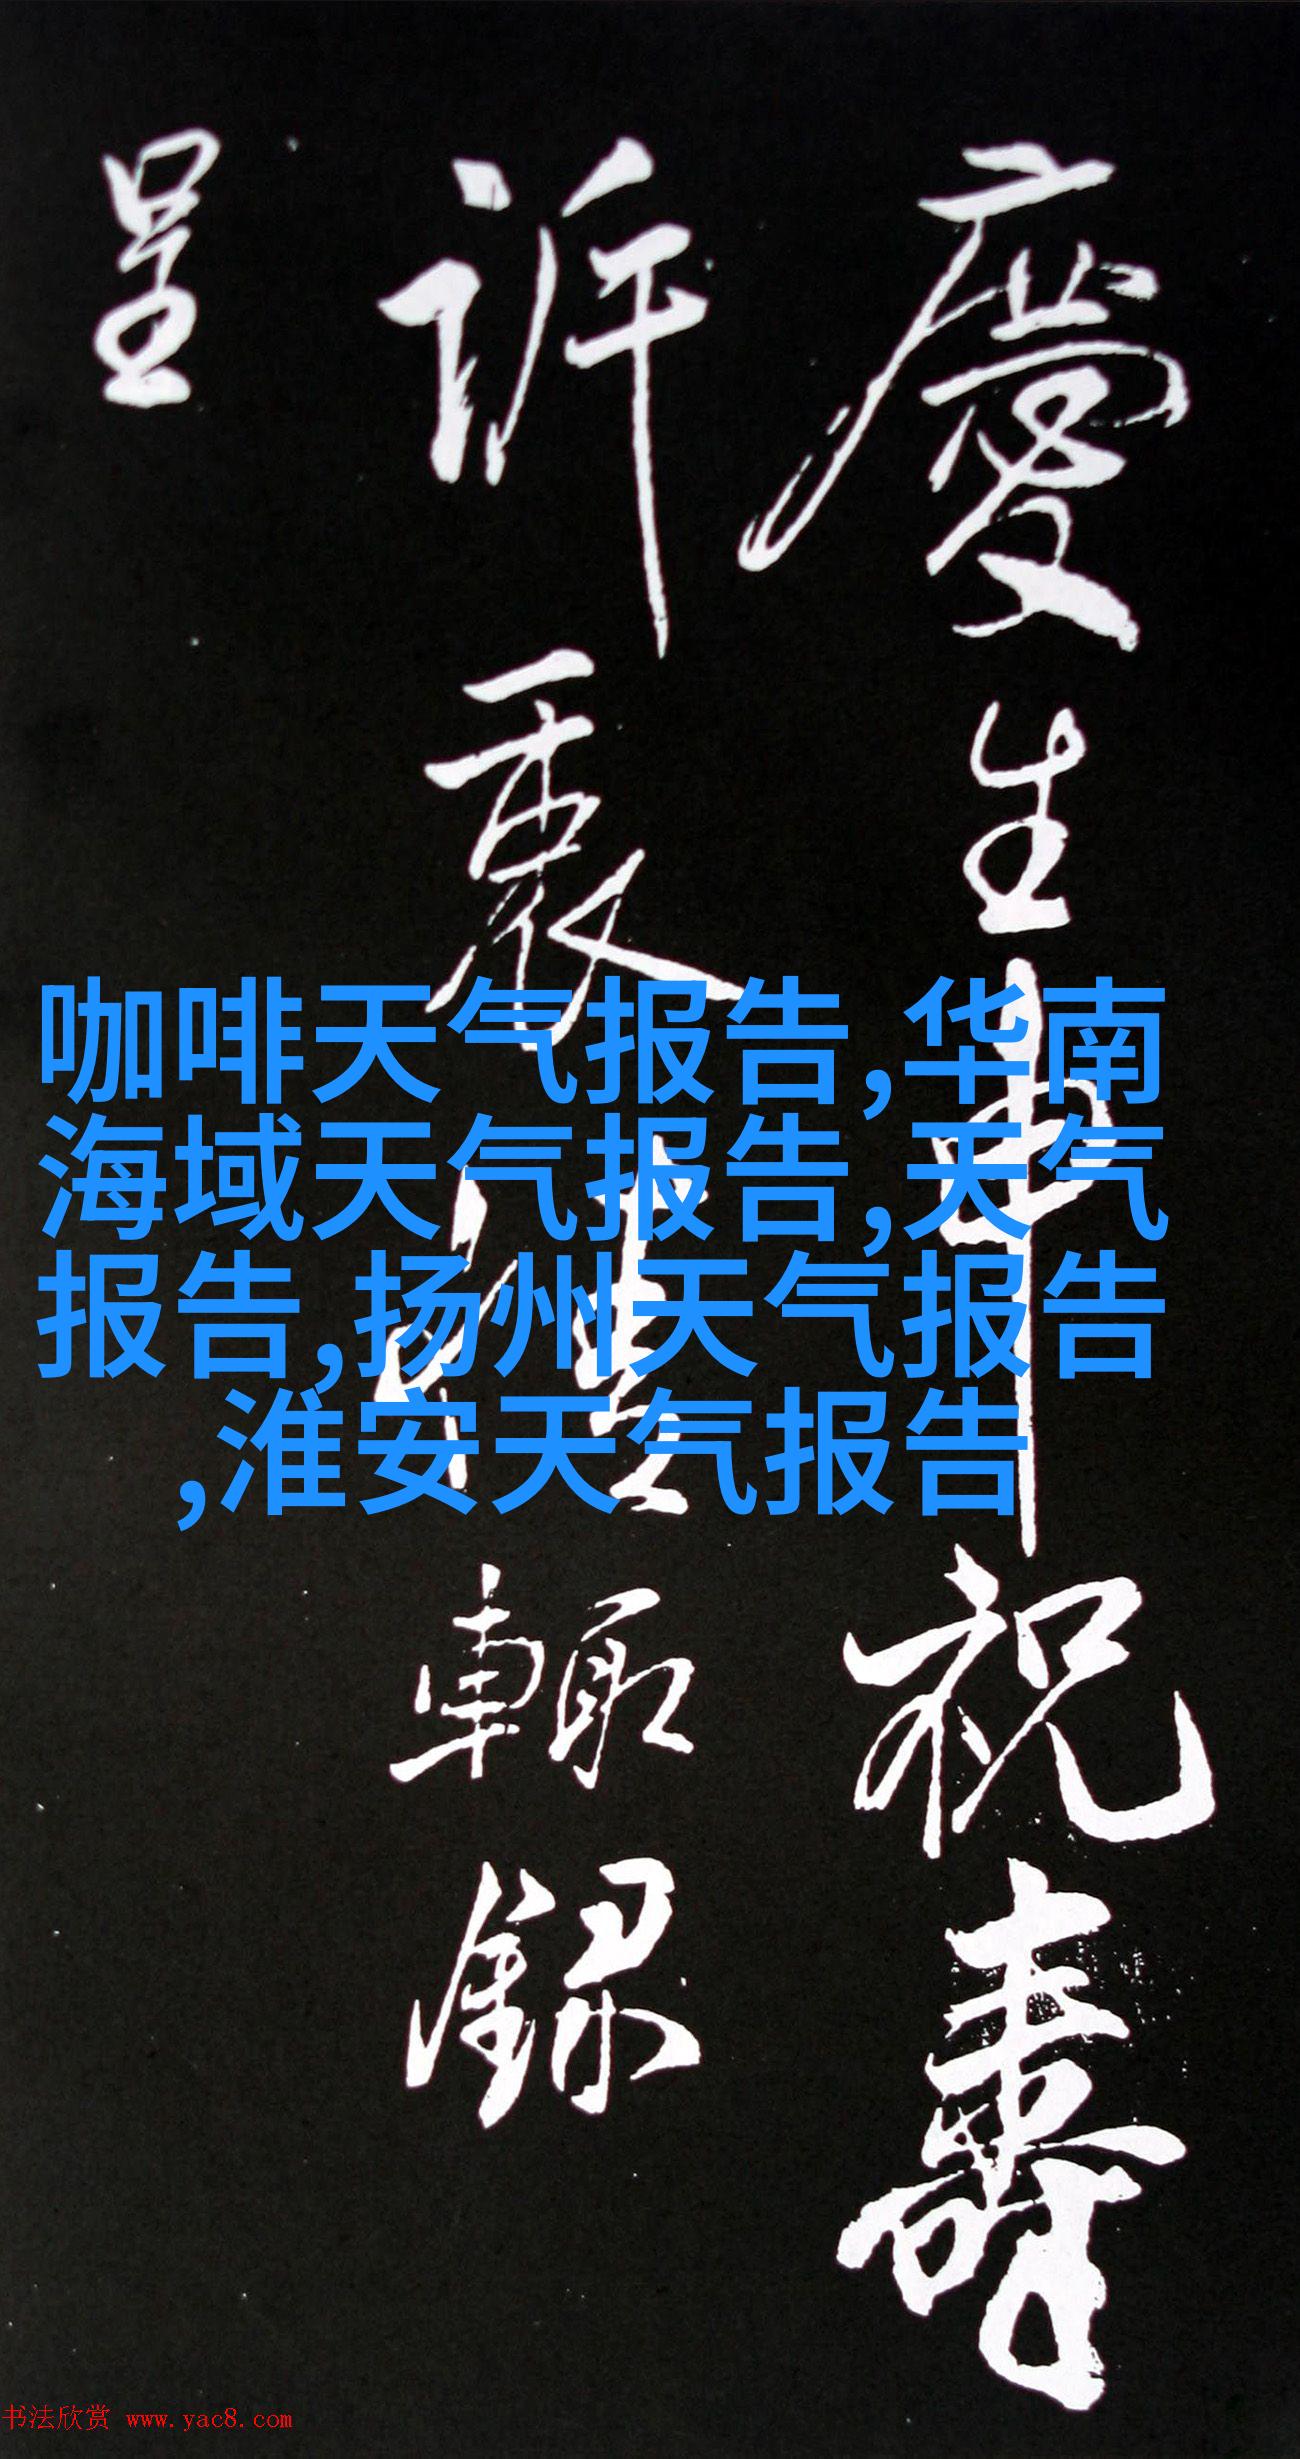 慶生申祝壽
訴衷情輒録
呈
咖啡天气报告,华南
海域天气报告,天气
报告,扬州天气报告
,淮安天气报告
书法欣赏 www.yac8.com